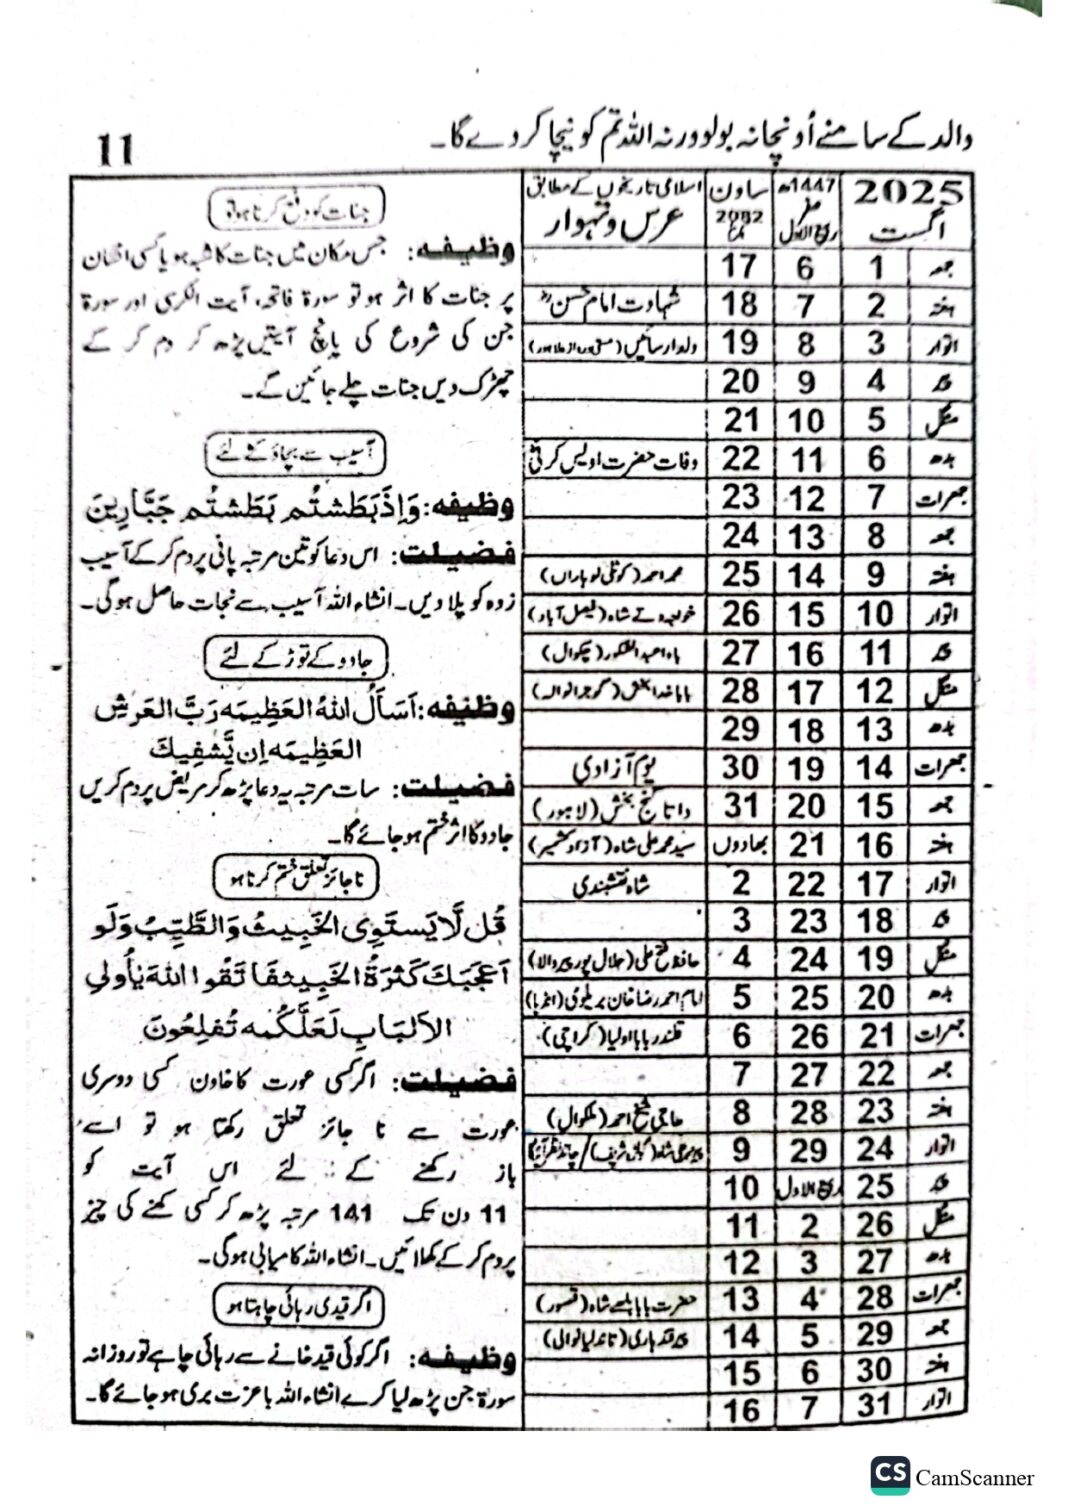 والد کے سامنے اُونچا نہ بولو ورنہ اللہ تم کو نیچا کر دے گا۔
11
2025 اگست
1447ھ صفر ربیع الاول
ساون 2082
اسلامی تاریخوں کے مطابق عرس و تہوار
جمعہ 1 6 17
ہفتہ 2 7 18 شہادت امام حسنؓ
اتوار 3 8 19 ولدار سائیں
4 9 20
منگل 5 10 21
بدھ 6 11 22 وفات حضرت اویس کرنی
جمعرات 7 12 23
جمعہ 8 13 24
ہفتہ 9 14 25 محمد احمد (کوٹلی لوہاراں)
اتوار 10 15 26 شاہ (فیصل آباد)
11 16 27 (چکوال)
منگل 12 17 28 بابا خدا بخش (گوجرانوالہ)
بدھ 13 18 29
جمعرات 14 19 30 یوم آزادی
جمعہ 15 20 31 داتا گنج بخش (لاہور)
ہفتہ 16 21 بھادوں سید محمد علی شاہ (آزاد کشمیر)
اتوار 17 22 2 شاہ نقشبندی
18 23 3
منگل 19 24 4 حافظ فتح علی (جلال پور پیر والا)
بدھ 20 25 5 امام احمد رضا خان بریلوی (انڈیا)
جمعرات 21 26 6 قلندر بابا اولیا (کراچی)
جمعہ 22 27 7
ہفتہ 23 28 8 حاجی شیخ احمد (ملکوال)
اتوار 24 29 9
25 ربیع الاول 10
منگل 26 2 11
بدھ 27 3 12
جمعرات 28 4 13 حضرت بابا بلھے شاہ (قصور)
جمعہ 29 5 14 پیر قندہاری (تاندلیانوالی)
ہفتہ 30 6 15
اتوار 31 7 16
جنات کو دفع کرنا ہو تو
وظیفہ: جس مکان میں جنات کا شبہ ہو یا کسی انسان
پر جنات کا اثر ہو تو سورۃ فاتحہ، آیت الکرسی اور سورۃ
جن کی شروع کی پانچ آیتیں پڑھ کر دم کر کے
چھڑک دیں جنات چلے جائیں گے۔
آسیب سے بچاؤ کے لئے
وظیفہ: وَإِذَ بَطَشتُم بَطَشتُم جَبَّارِينَ
فضیلت: اس دعا کو تین مرتبہ پانی پر دم کر کے آسیب
زدہ کو پلا دیں۔ انشاء اللہ آسیب سے نجات حاصل ہوگی۔
جادو کے توڑ کے لئے
وظیفہ: اَسَأَلُ اللهُ العَظِيمَه رَبَّ العَرشِ
العَظِيمَه اِن يَّشفِيكَ
فضیلت: سات مرتبہ یہ دعا پڑھ کر مریض پر دم کریں
جادو کا اثر ختم ہو جائے گا۔
ناجائز تعلق ختم کرنا ہو
قُل لَّا يَستَوِى الخَبِيثُ وَالطَّيِّبُ وَلَو
اَعجَبَكَ كَثرَةُ الخَبِيثِ فَا تَقُوا اللهَ يٰأُولِي
الاَلبَابِ لَعَلَّكُمه تُفلِحُونَ
فضیلت: اگر کسی عورت کا خاون کسی دوسری
عورت سے نا جائز تعلق رکھتا ہو تو اسے
باز رکھنے کے لئے اس آیت کو
11 دن تک 141 مرتبہ پڑھ کر کسی کھنے کی چیز
پر دم کر کے کھلائیں۔ انشاء اللہ کامیابی ہوگی۔
اگر قیدی رہائی چاہتا ہو
وظیفہ: اگر کوئی قید خانے سے رہائی چاہے تو روزانہ
سورۃ جن پڑھ لیا کرے انشاء اللہ باعزت بری ہو جائے گا۔
CS CamScanner